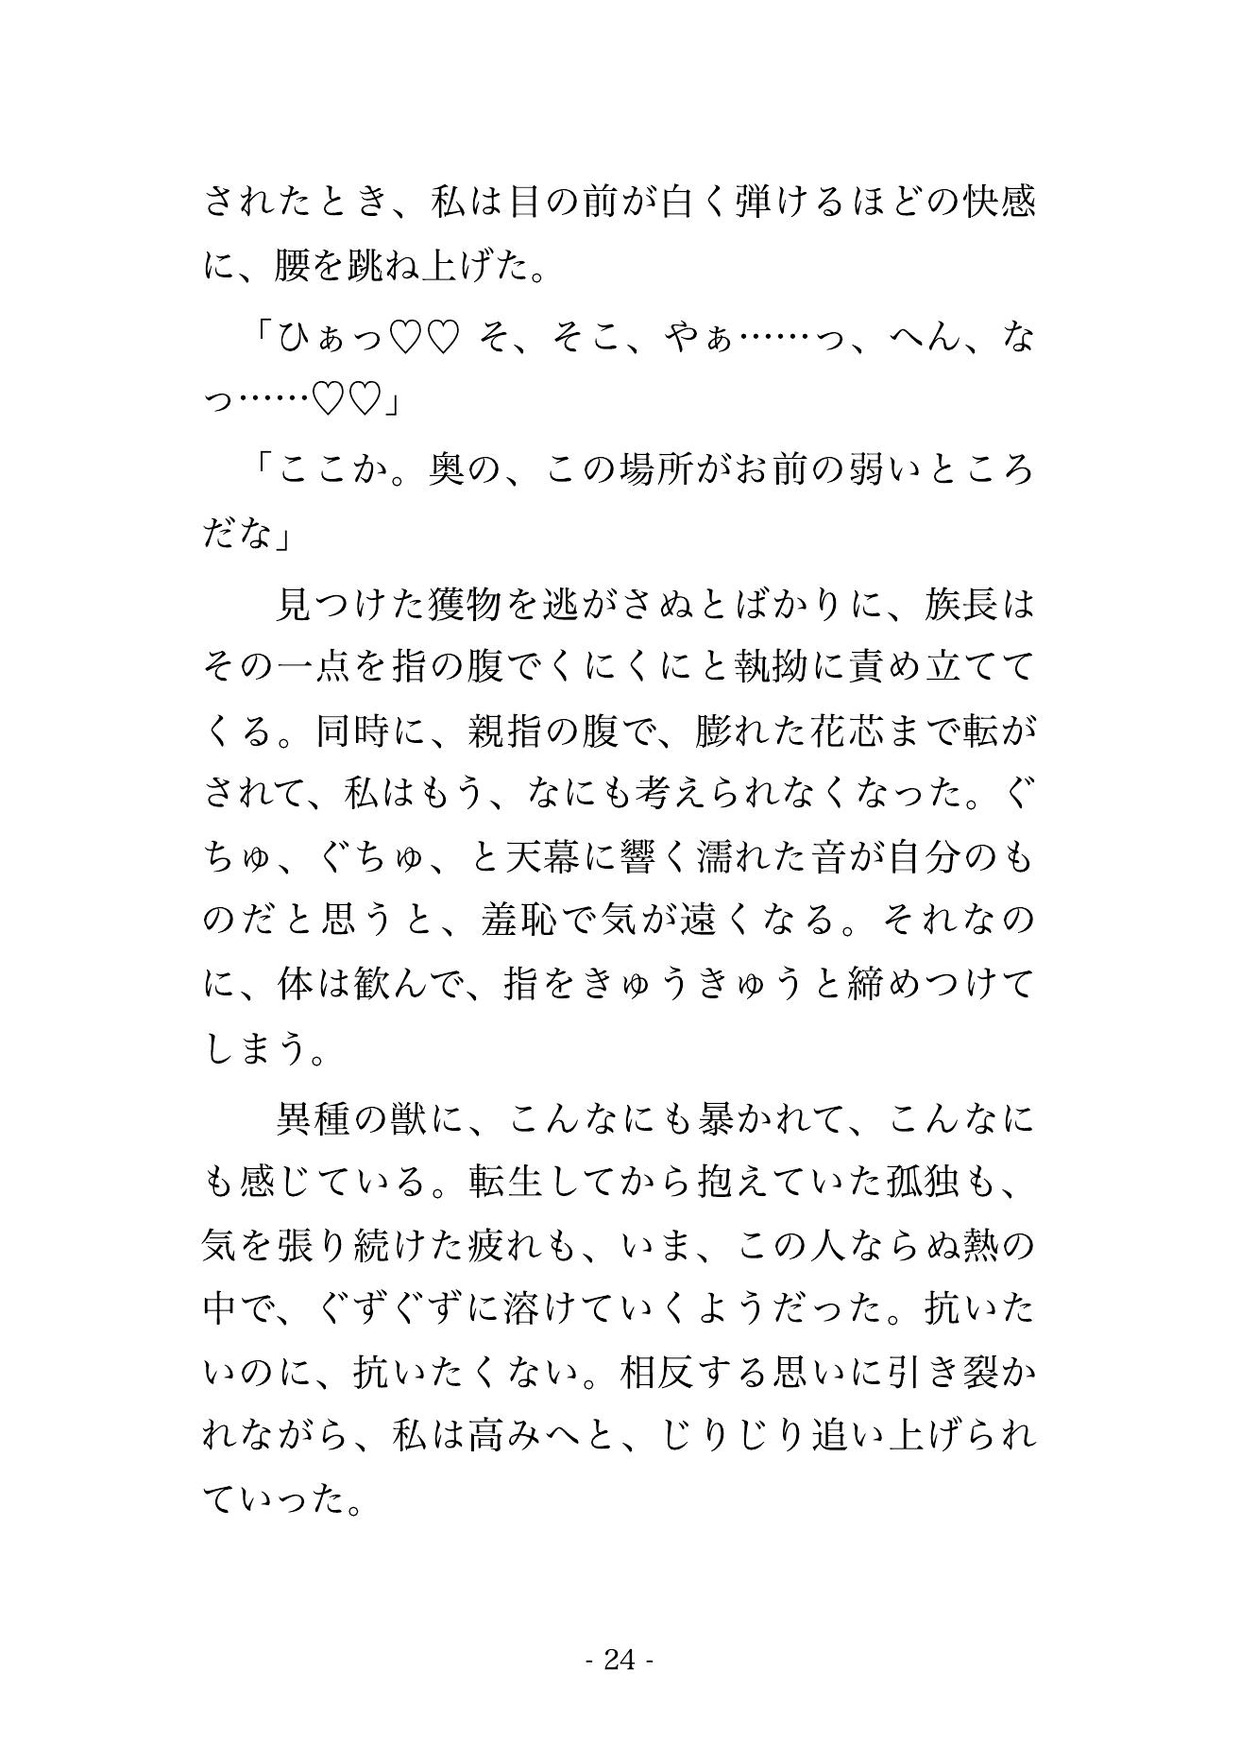 されたとき、私は目の前が白く弾けるほどの快感
に、腰を跳ね上げた。
「ひぁっ♡♡ そ、そこ、やぁ……っ、へん、な
っ……♡♡」
「ここか。奥の、この場所がお前の弱いところ
だな」
見つけた獲物を逃がさぬとばかりに、族長は
その一点を指の腹でくにくにと執拗に責め立てて
くる。同時に、親指の腹で、膨れた花芯まで転が
されて、私はもう、なにも考えられなくなった。ぐ
ちゅ、ぐちゅ、と天幕に響く濡れた音が自分のも
のだと思うと、羞恥で気が遠くなる。それなの
に、体は歓んで、指をきゅうきゅうと締めつけて
しまう。
異種の獣に、こんなにも暴かれて、こんなに
も感じている。転生してから抱えていた孤独も、
気を張り続けた疲れも、いま、この人ならぬ熱の
中で、ぐずぐずに溶けていくようだった。抗いた
いのに、抗いたくない。相反する思いに引き裂か
れながら、私は高みへと、じりじり追い上げられ
ていった。
- 24 -